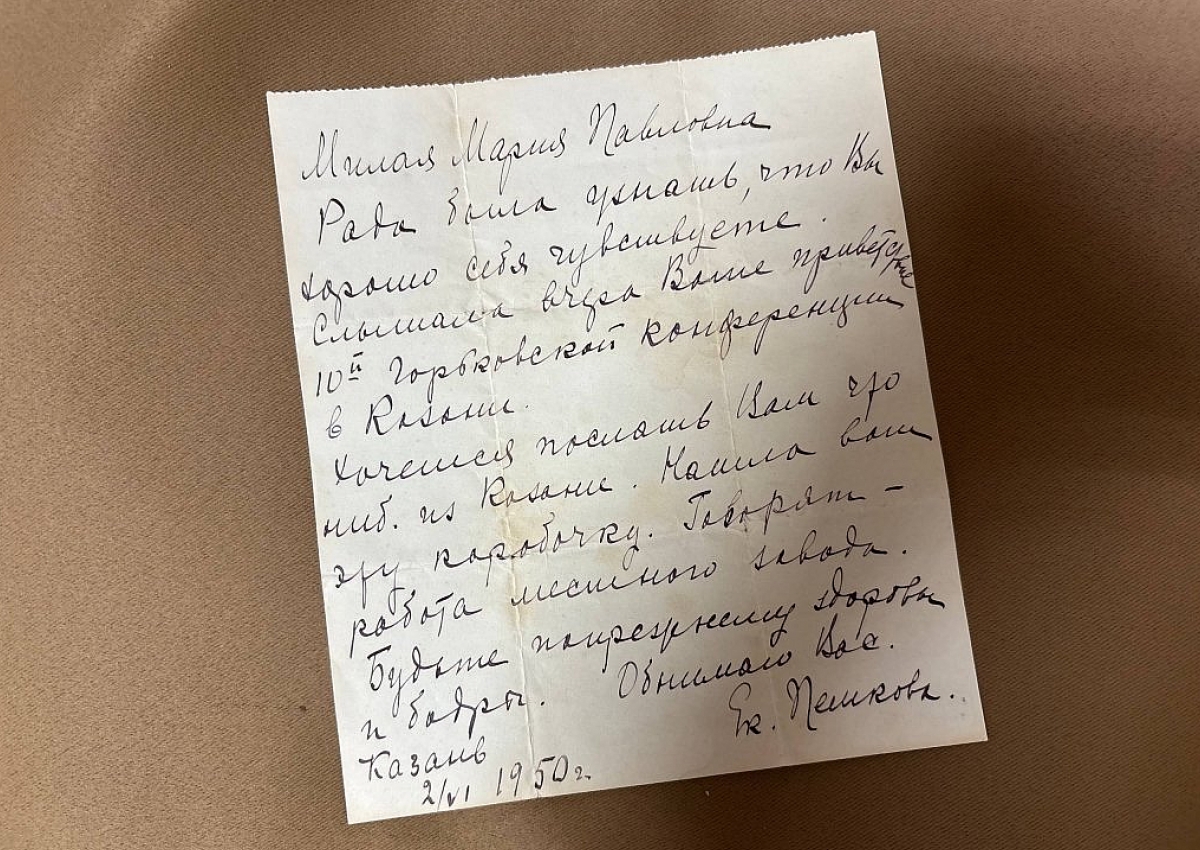 Милая Мария Павловна
Рада была узнать, что Вы
хорошо себя чувствуете.
Слышала вчера Ваше приветствие
10й Горьковской конференции
в Казани.
Хочется послать Вам что
ниб. из Казани. Нашла вот
эту коробочку. Говорят –
работа местного завода.
Будьте попрежнему здоровы
и бодры. Обнимаю Вас.
Ек. Пешкова.
Казань
2/VI 1950 г.